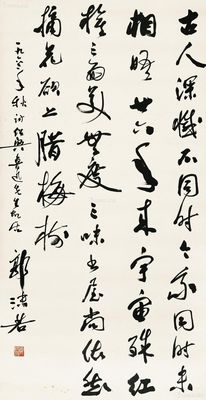 古人深憾不同时今我同时未
相晤廿六年来宇宙殊红
旗三面美無度三味书屋尚依然
摘花欲上腊梅樹
一九六二年秋訪绍興鲁迅先生故居
郭沫若